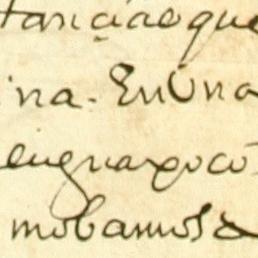 tanciaeque
ina. En Una
lenguaxoco
mobamosa